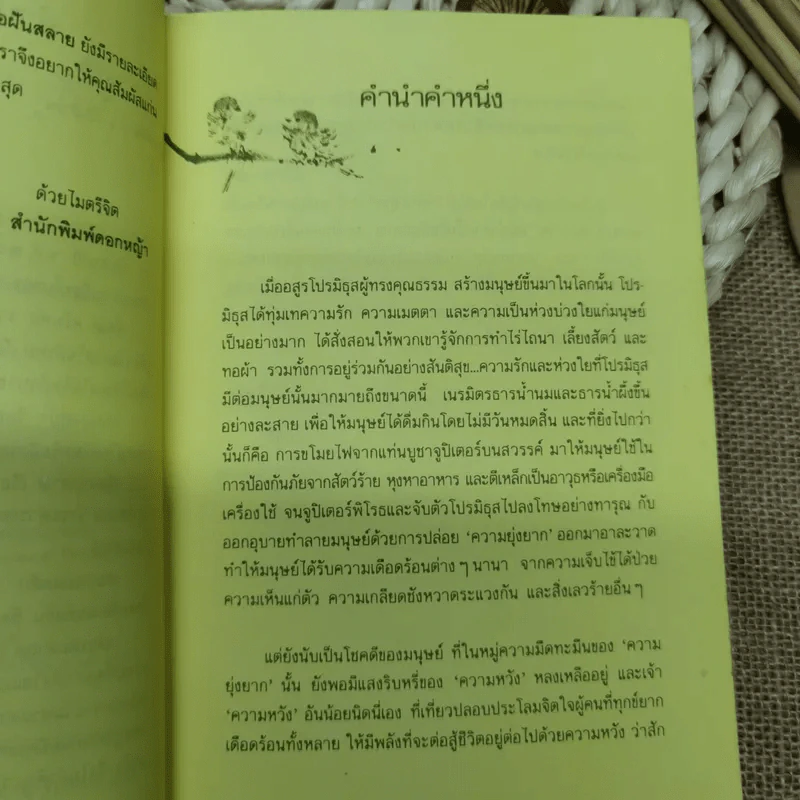 อฝันสลาย ยังมีรายละเอียด
ราจึงอยากให้คุณสัมผัสแก่น
สุด
ด้วยไมตรีจิต
สำนักพิมพ์ดอกหญ้า
คำนำคำหนึ่ง
เมื่ออสูรโปรมิธุสผู้ทรงคุณธรรม สร้างมนุษย์ขึ้นมาในโลกนั้น โปร-
มิธุสได้ทุ่มเทความรัก ความเมตตา และความเป็นห่วงบ่วงใยแก่มนุษย์
เป็นอย่างมาก ได้สั่งสอนให้พวกเขารู้จักการทำไร่ไถนา เลี้ยงสัตว์ และ
ทอผ้า รวมทั้งการอยู่ร่วมกันอย่างสันติสุข...ความรักและห่วงใยที่โปรมิธุส
มีต่อมนุษย์นั้นมากมายถึงขนาดนี้ เนรมิตรธารน้ำนมและธารน้ำผึ้งขึ้น
อย่างละสาย เพื่อให้มนุษย์ได้ดื่มกินโดยไม่มีวันหมดสิ้น และที่ยิ่งไปกว่า
นั้นก็คือ การขโมยไฟจากแท่นบูชาจูปิเตอร์บนสวรรค์ มาให้มนุษย์ใช้ใน
การป้องกันภัยจากสัตว์ร้าย หุงหาอาหาร และตีเหล็กเป็นอาวุธหรือเครื่องมือ
เครื่องใช้ จนจูปิเตอร์พิโรธและจับตัวโปรมิธุสไปลงโทษอย่างทารุณ กับ
ออกอุบายทำลายมนุษย์ด้วยการปล่อย ‘ความยุ่งยาก’ ออกมาอาละวาด
ทำให้มนุษย์ได้รับความเดือดร้อนต่าง ๆ นานา จากความเจ็บไข้ได้ป่วย
ความเห็นแก่ตัว ความเกลียดชังหวาดระแวงกัน และสิ่งเลวร้ายอื่น ๆ
แต่ยังนับเป็นโชคดีของมนุษย์ ที่ในหมู่ความมืดทะมึนของ ‘ความ
ยุ่งยาก’ นั้น ยังพอมีแสงริบหรี่ของ ‘ความหวัง’ หลงเหลืออยู่ และเจ้า
‘ความหวัง’ อันน้อยนิดนี่เอง ที่เที่ยวปลอบประโลมจิตใจผู้คนที่ทุกข์ยาก
เดือดร้อนทั้งหลาย ให้มีพลังที่จะต่อสู้ชีวิตอยู่ต่อไปด้วยความหวัง ว่าสัก